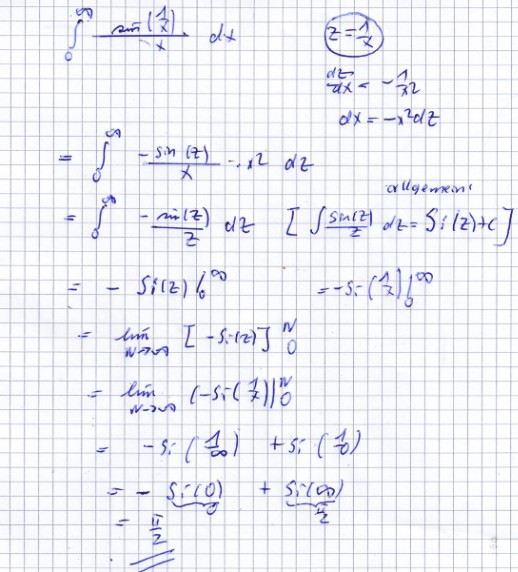 ∫₀^∞ sin(1/x)/x dx   z = 1/x
dz/dx = -1/x²
dx = -x² dz
= ∫₀^∞ -sin(z)/x · x² dz
allgemein:
= ∫₀^∞ -sin(z)/z dz [∫ sin(z)/z dz = Si(z)+C]
= - Si(z) |₀^∞   = -Si(1/x) |₀^∞
= lim N→∞ [-Si(z)] ₀^N
= lim N→∞ (-Si(1/x)) |₀^N
= -Si(1/∞) + Si(1/0)
= - Si(0) + Si(∞)
0   π/2
= π/2